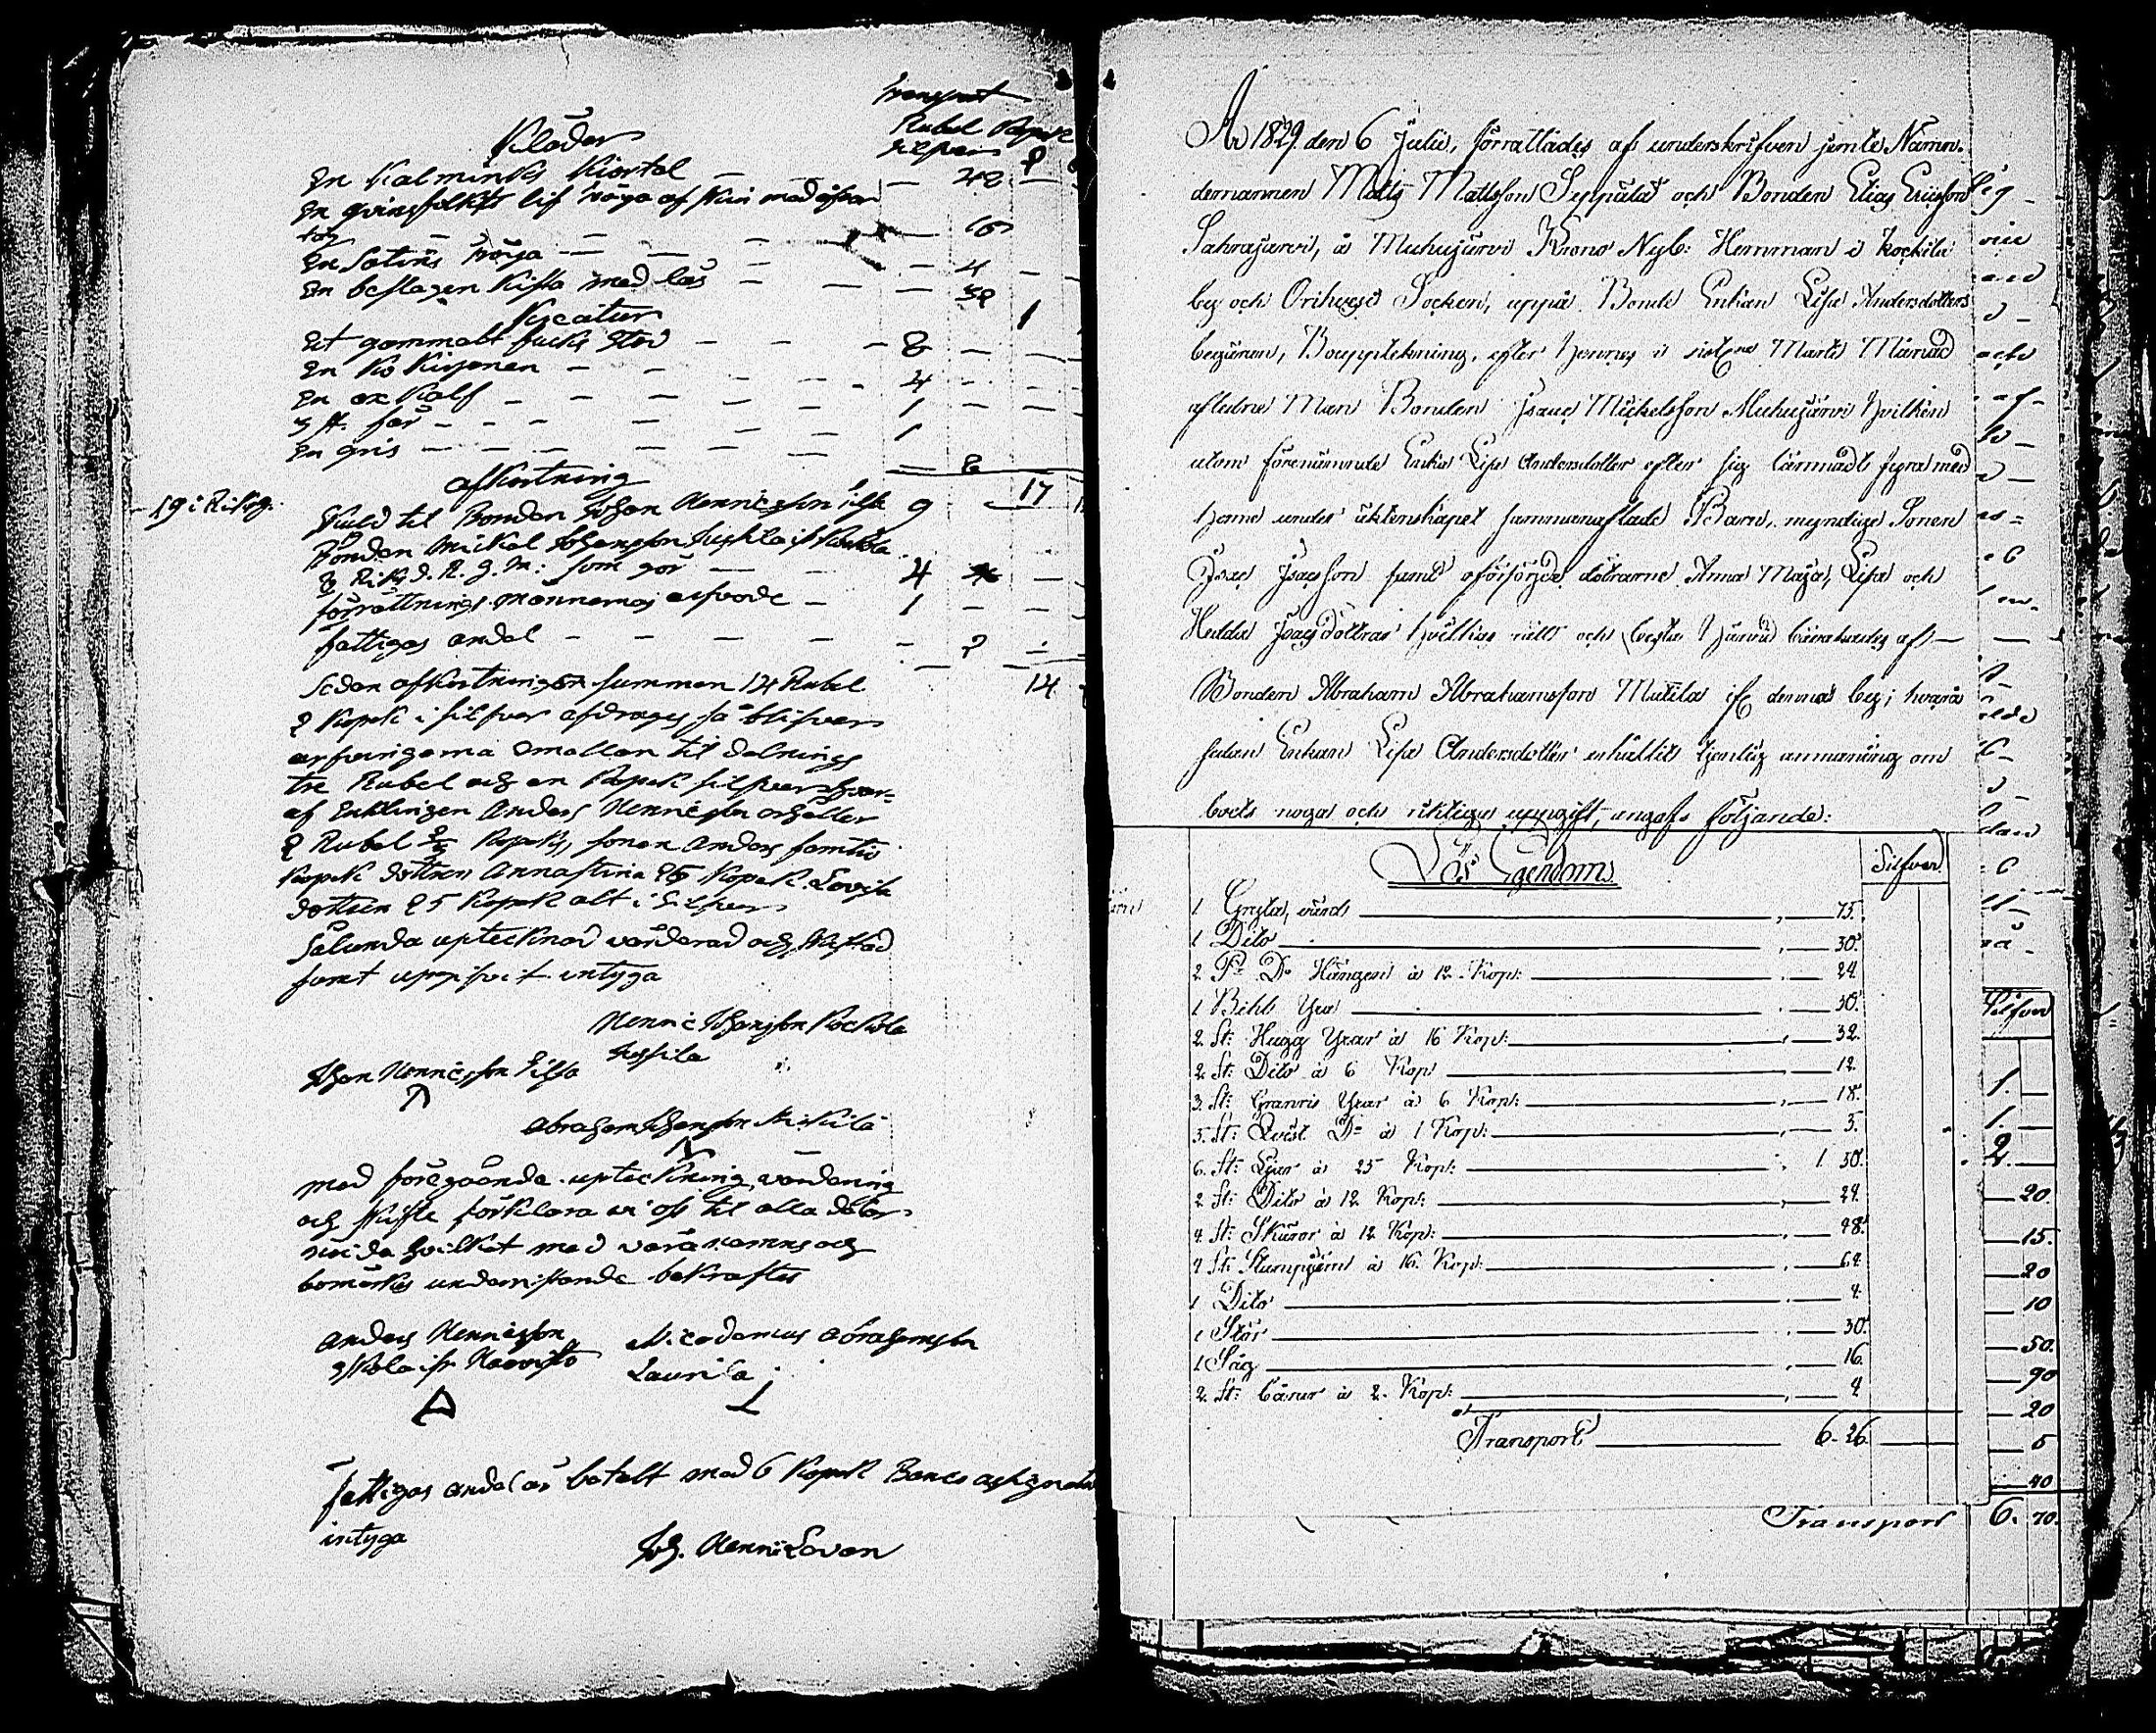 Transport
Rubel Kopek
Silfver
Kläder
En Kalminks Kiortel — — — 42 —
En qvinsfolks lif tröya af skin med öfver
tög — — — — 60
En Satins tröya — — — — 4 — —
En beslagen Kista med lås — — — 32
Kreatur 1
Et gammalt fucks Sto — — — 8 — —
En Ko Kirjonen — — — — 4 — —
En ox Kalf — — — — 1 — —
3 st. får — — — — 1
En gris — — — — —
afkortning 17
19 i Riksg.
Skuld til Bonden Johan Hennicsson 9
Bonden Mickel Johansson
2 Riksd. R. g. m: som gör — — 4 —
förrättnings männernas arfvode — 1 — —
fattigas andel — — — — 2 —
Sedan afkortningen summan 14 Rubel 14
2 Kopek i silfver afdrages så blifver
arfvingarna emellan til delnings
tre Rubel och en Kopek silfver hvar=
af Enklingen Anders Hennicsson erhåller
2 Rubel Kopek, sonen Anders femtio
Kopek dottren Annastina 25 Kopek Lovisa
dottren 25 Kopek alt i Silfver
Sålunda uptecknad värderad och skiftad
samt uppgifvit intyga
Hennic Johansson Kockola
Seppila
Johan Hennicsson
Abraham Johansson Mickila
med föregående upteckning, värdering
och skifte förklara vi oss til alla delar
nöijda hvilket med våra namns och
bomärkes undersättande bekräftes
Anders Hennicsson
Nicodemus Abrahamsson
Laurila
fattigas andel är betalt med 6 Kopek Banco assignation
intyga
Joh. Hennic Loven
År 1829 den 6 Julii, förrättades af underskrifven jemte Nämn-
demannen Matts Mattsson Seppälä och Bonden Elias Ericsson
Sahrajärvi, å Muhujärvi Krono Nyb: Hemman i Kockila
by och Orihvesi Socken, uppå Bonde Enkan Lisa Andersdotters
begäran, Bouppteckning, efter hennes i sistne Martii Månad
aflidne Man Bonden Isaac Michelsson Muhujärvi hvilken
utom förenämnde Enka Lisa Andersdotter efter sig lämnadt fyra med
henne under äktenskapet sammanaflade Barn, myndige Sonen
Isac Isacsson samt oförsörjda döttrarne Anna Maja, Lisa och
Hedda Isacsdöttrar hvilkas rätt och bästa härvid bevakades af —
Bonden Abraham Abrahamsson Mutila if: denna by; hvarå
sedan Enkan Lisa Andersdotter erhållit tjenlig anmaning om
boets noga och riktiga uppgift, angafs följande:
Lös Egendom. Silfver
1 Gryta, värd — 75.
1 Dito — 30.
2. Pr Do Hängen à 12. Kop: — 24
1 Bihl Yxa — 30.
2. St: Hugg Yxar à 16 Kop: — 32.
2. St: Dito à 6 Kop — 12.
3. St: Granris Yxar à 6 Kop: — 18.
5. St: Qvist Do à 1 Kop: — 5.
6. St: Liar à 25 Kop: — 1 50.
2 St: Dito à 12 Kop: — 24.
4. St: Skäror à 12 Kop: — 48.
4 St: Stampjern à 16. Kop: — 64.
1 Dito — 4.
1 Stör — 30.
1 Såg — 16.
2. St: à 2. Kop: — 4
Transport — 6. 26.
Silfver
1.
1.
2.
20.
15.
20
10
50.
90
20
5
40
Transport 6. 70.